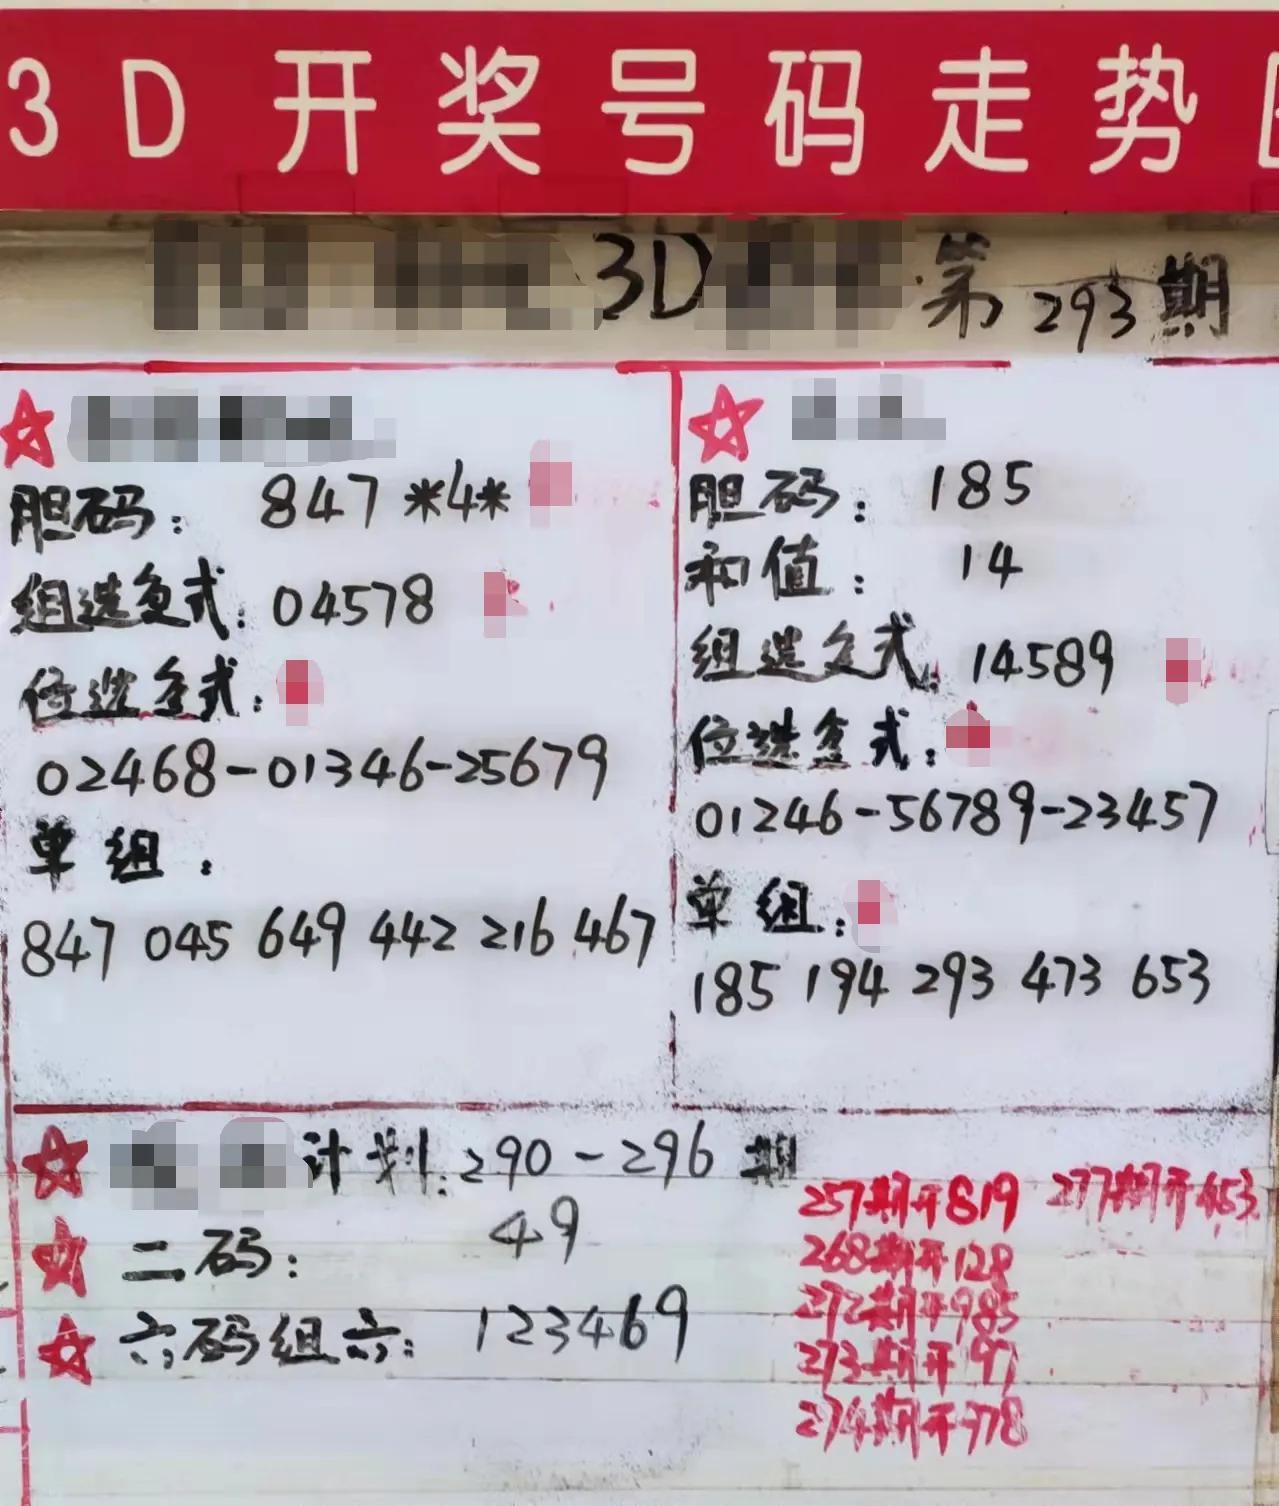 3D开奖号码走势
3D 第293期
胆码: 847 *4*
组选复式: 04578
位选复式:
02468-01346-25679
单组:
847 045 649 442 216 467
胆码: 185
和值: 14
组选复式: 14589
位选复式:
01246-56789-23457
单组:
185 194 293 473 653
计划: 290-296期
二码: 49
六码组六: 123469
257期开819
277期开453
268期开128
272期开985
273期开
274期开778